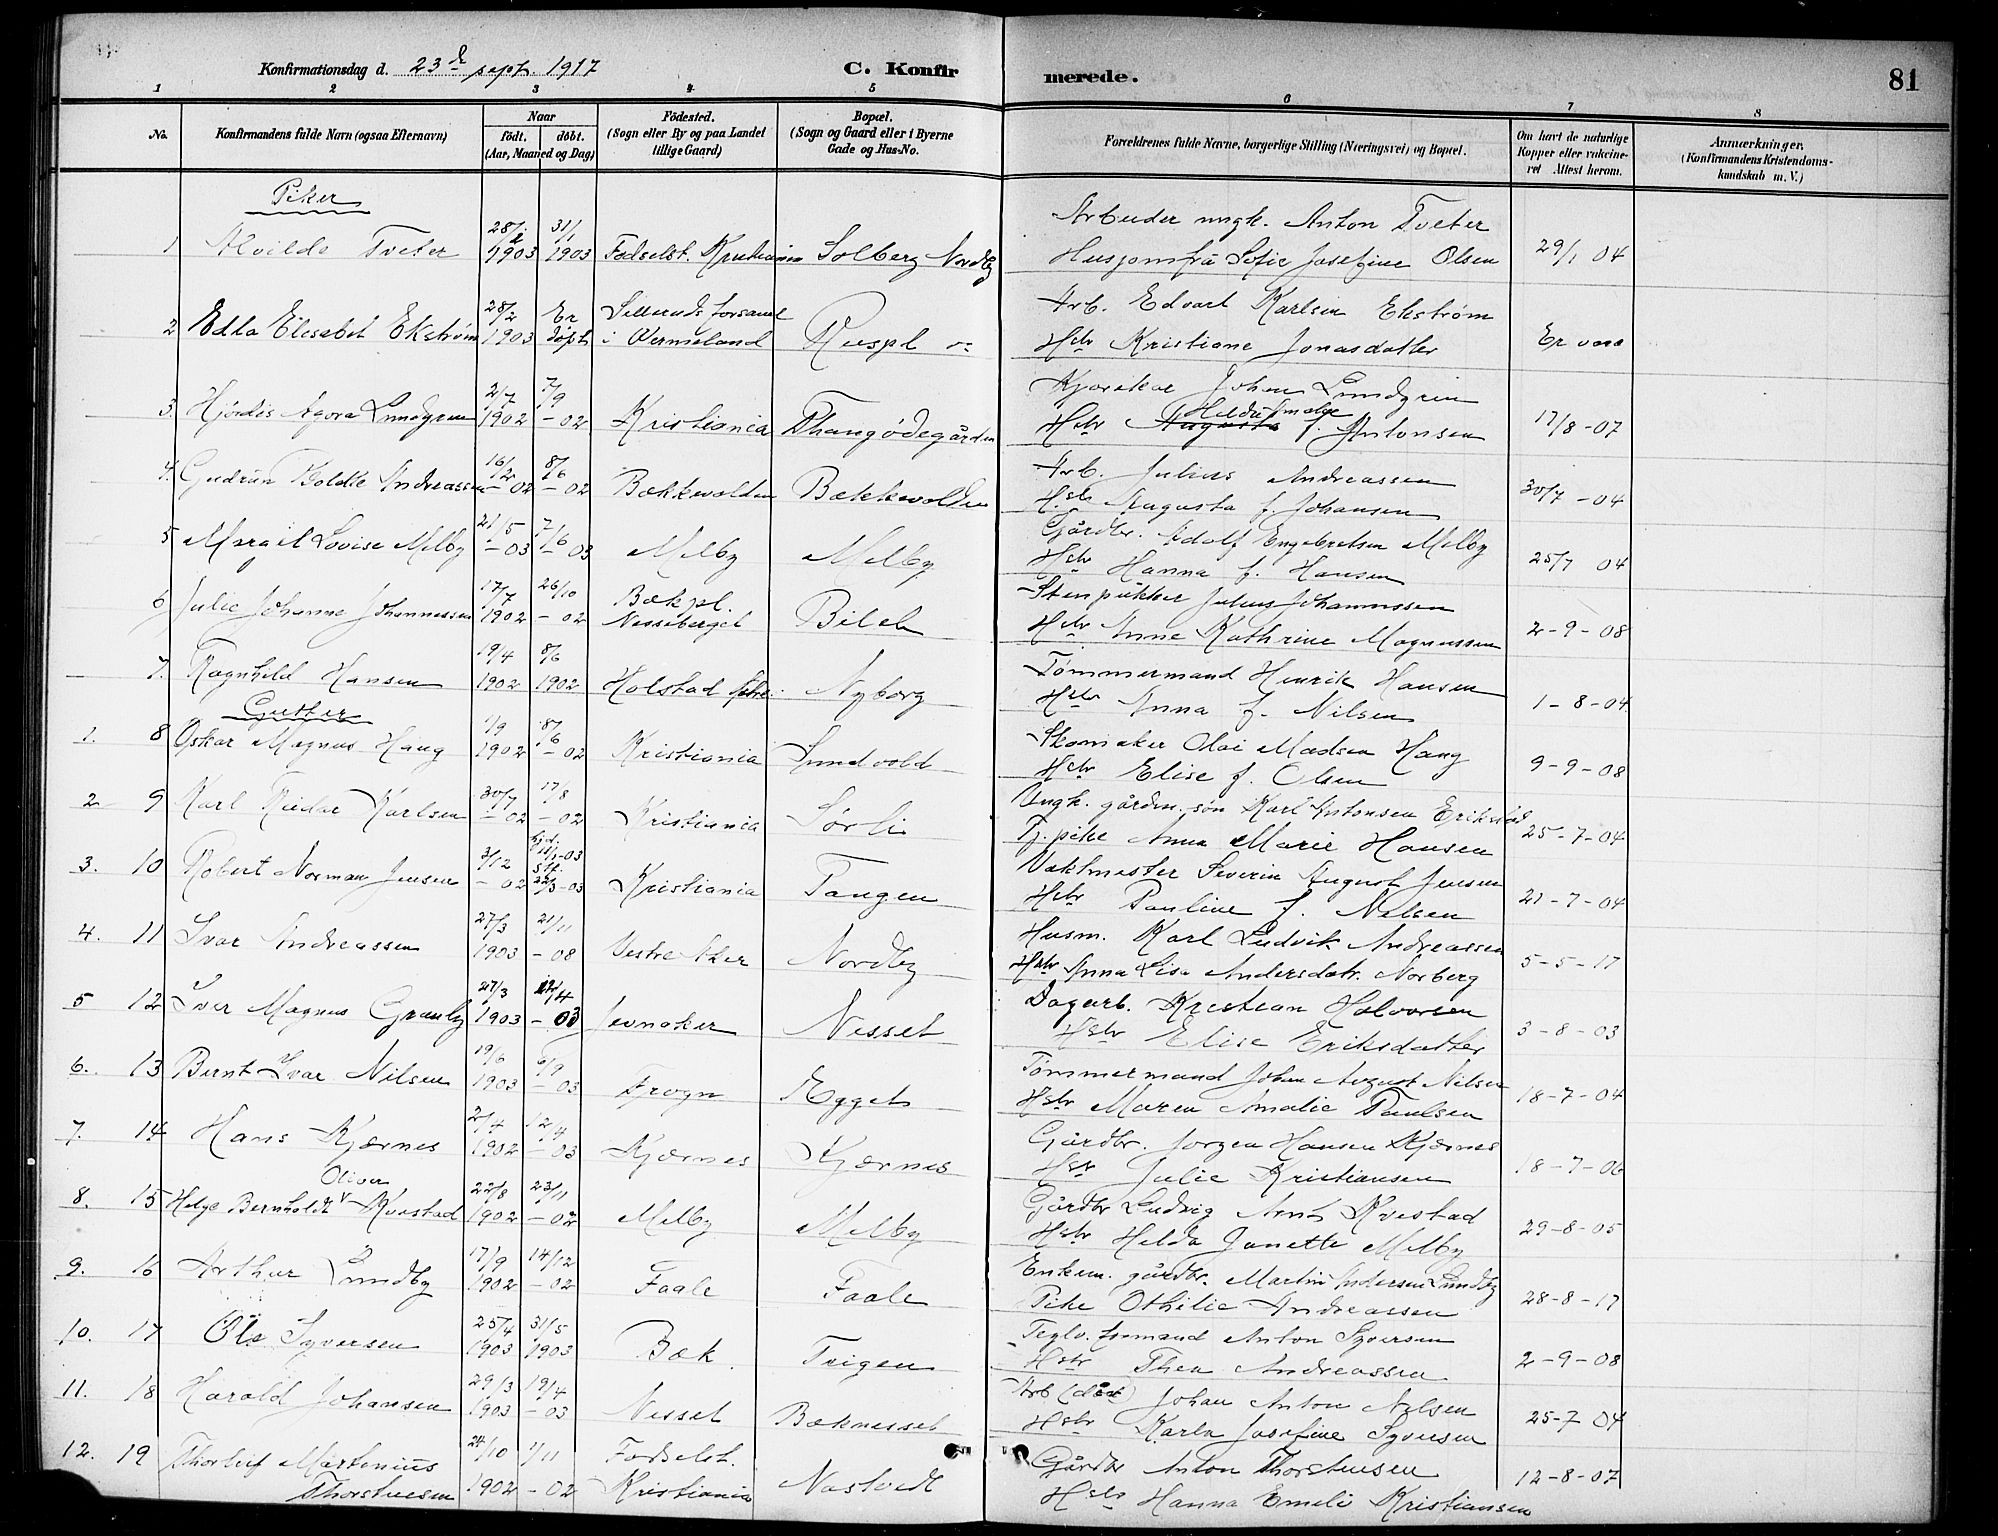 Konfirmationsdag d. 23de sept. 1917
C. Konfirmerede.
81
1 2 3 4 5 6 7 8
No.
Konfirmandens fulde Navn (ogsaa Efternavn)
Naar
født. døbt.
(Aar, Maaned og Dag)
Fødested.
(Sogn eller By og paa Landet
tillige Gaard)
Bopæl.
(Sogn og Gaard eller i Byerne
Gade og Hus-No.
Forældrenes fulde Navne, borgerlige Stilling (Næringsvei) og Bopæl.
Om havt de naturlige
Kopper eller vakcine-
ret Attest herom.
Anmærkninger.
(Konfirmandens Kristendoms-
kundskab m. V.)
Piker
1 Alvilde Tveter 1903 31/1 1903 Fødselst. Kristiania Solberg Nordby
Arbeider ungk. Anton Tveter
Husjomfru Sofie Josefine Olsen 29/1 04
2 Edla Elisabet Ekstrøm 28/2 1903 Er døpt Sillerud forsaml i Vermeland Ruspl
Arb. Edvart Karlsen Ekstrøm
Hstr Kristiane Jonasdatter Er vacc
3. Hjørdis Agora Lundgren 2/7 1902 7/9 - 02 Kristiania Thangødegården
Kjørekar Johan Lundgren
Hstr Augusta f. Antonsen 17/8 - 07
4. Gudrun Boldte Andreassen 16/2 - 02 8/6 - 02 Bækkevolden Bækkevolden
Arb. Julius Andreassen
Hstr Augusta f. Johansen 30/7 - 04
5 Margit Lovise Melby 21/5 - 03 7/6 - 03 Melby Melby
Gårdbr. Adolf Engebretsen Melby
Hstr Hanna f. Hansen 25/7 04
6 Julie Johanne Johannessen 17/7 1902 26/10 - 02 Bækpl. Nesseberget Bilet
Stenpukker Julius Johannessen
Hstr Anne Kathrine Magnussen 2-9-08
7. Ragnhild Hansen 19/4 1902 8/6 1902 Holstad Nyborg
Tømmermand Henrik Hansen
Hstr Anna f. Nilsen 1-8-04
Gutter
1. 8 Oskar Magnus Haug 1/9 1902 8/6 - 02 Kristiania Lundvold
Skomaker Olai Madsen Haug
Hstr Elise f. Olsen 9-9-08
2 9 Karl Reidar Karlsen 30/7 - 02 17/8 - 02 Kristiania Sørli
Ungk. gårdm. søn Karl Antonsen Erikstad
Tj. pike Anna Marie Hansen 25-7-04
3. 10 Robert Norman Jensen 3/12 - 02 22/3 - 03 Kristiania Tangen
Vaktmester Severin August Jensen
Hstr Pauline f. Nilsen 21-7-04
4. 11 Ivar Andreassen 27/3 1903 21/11 - 08 Vestre Aker Nordby
Husm. Karl Ludvik Andreassen
Hstr Anna Lisa Andersdatr. Norberg 5-5-17
5 12 Iver Magnus Granby 27/3 1903 - 03 Jevnaker Nesset
Dagarb. Kristian Halvorsen
Hstr Elise Eriksdatter 3-8-03
6. 13 Bernt Ivar Nilsen 19/6 1903 6/9 - 03 Frogn Egget
Tømmermand Johan August Nilsen
Hstr Maren Amalie Paulsen 18-7-04
7. 14 Hans Kjærnes 2/4 1902 12/4 - 03 Kjærnes Kjærnes
Gårdbr. Jørgen Hansen Kjærnes
Hstr Julie Kristiansen 18-7-06
8. 15 Helge Bernholdt Oliver Kvestad 22/8 1902 23/11 - 02 Melby Melby
Gårdbr Ludvig Arnt Kvestad
Hstr Helda Janette Melby 29-8-05
9. 16 Arthur Lundby 17/9 1902 14/12 - 02 Faale Faale
Enkem. gårdbr. Martin Andersen Lundby
Pike Othilie Andreassen 28-8-17
10. 17 Ole Syversen 25/4 1903 31/5 1903 Bæk. Trigen
Teglv. formand Anton Syversen
Hstr Thea Andreassen 2-9-08
11. 18 Harald Johansen 29/3 1903 19/4 - 03 Nesset Bæknesset
Arb (død) Johan Anton Nilsen
Hstr Karla Josefine Syversen 25-7 04
12. 19 Thorleif Martenius Thorstensen 24/10 1902 1/11 - 02 Fødselst. Kristiania Nastvedt
Gårdbr Anton Thorstensen
Hstr Hanna Emeli Kristiansen 12-8-07